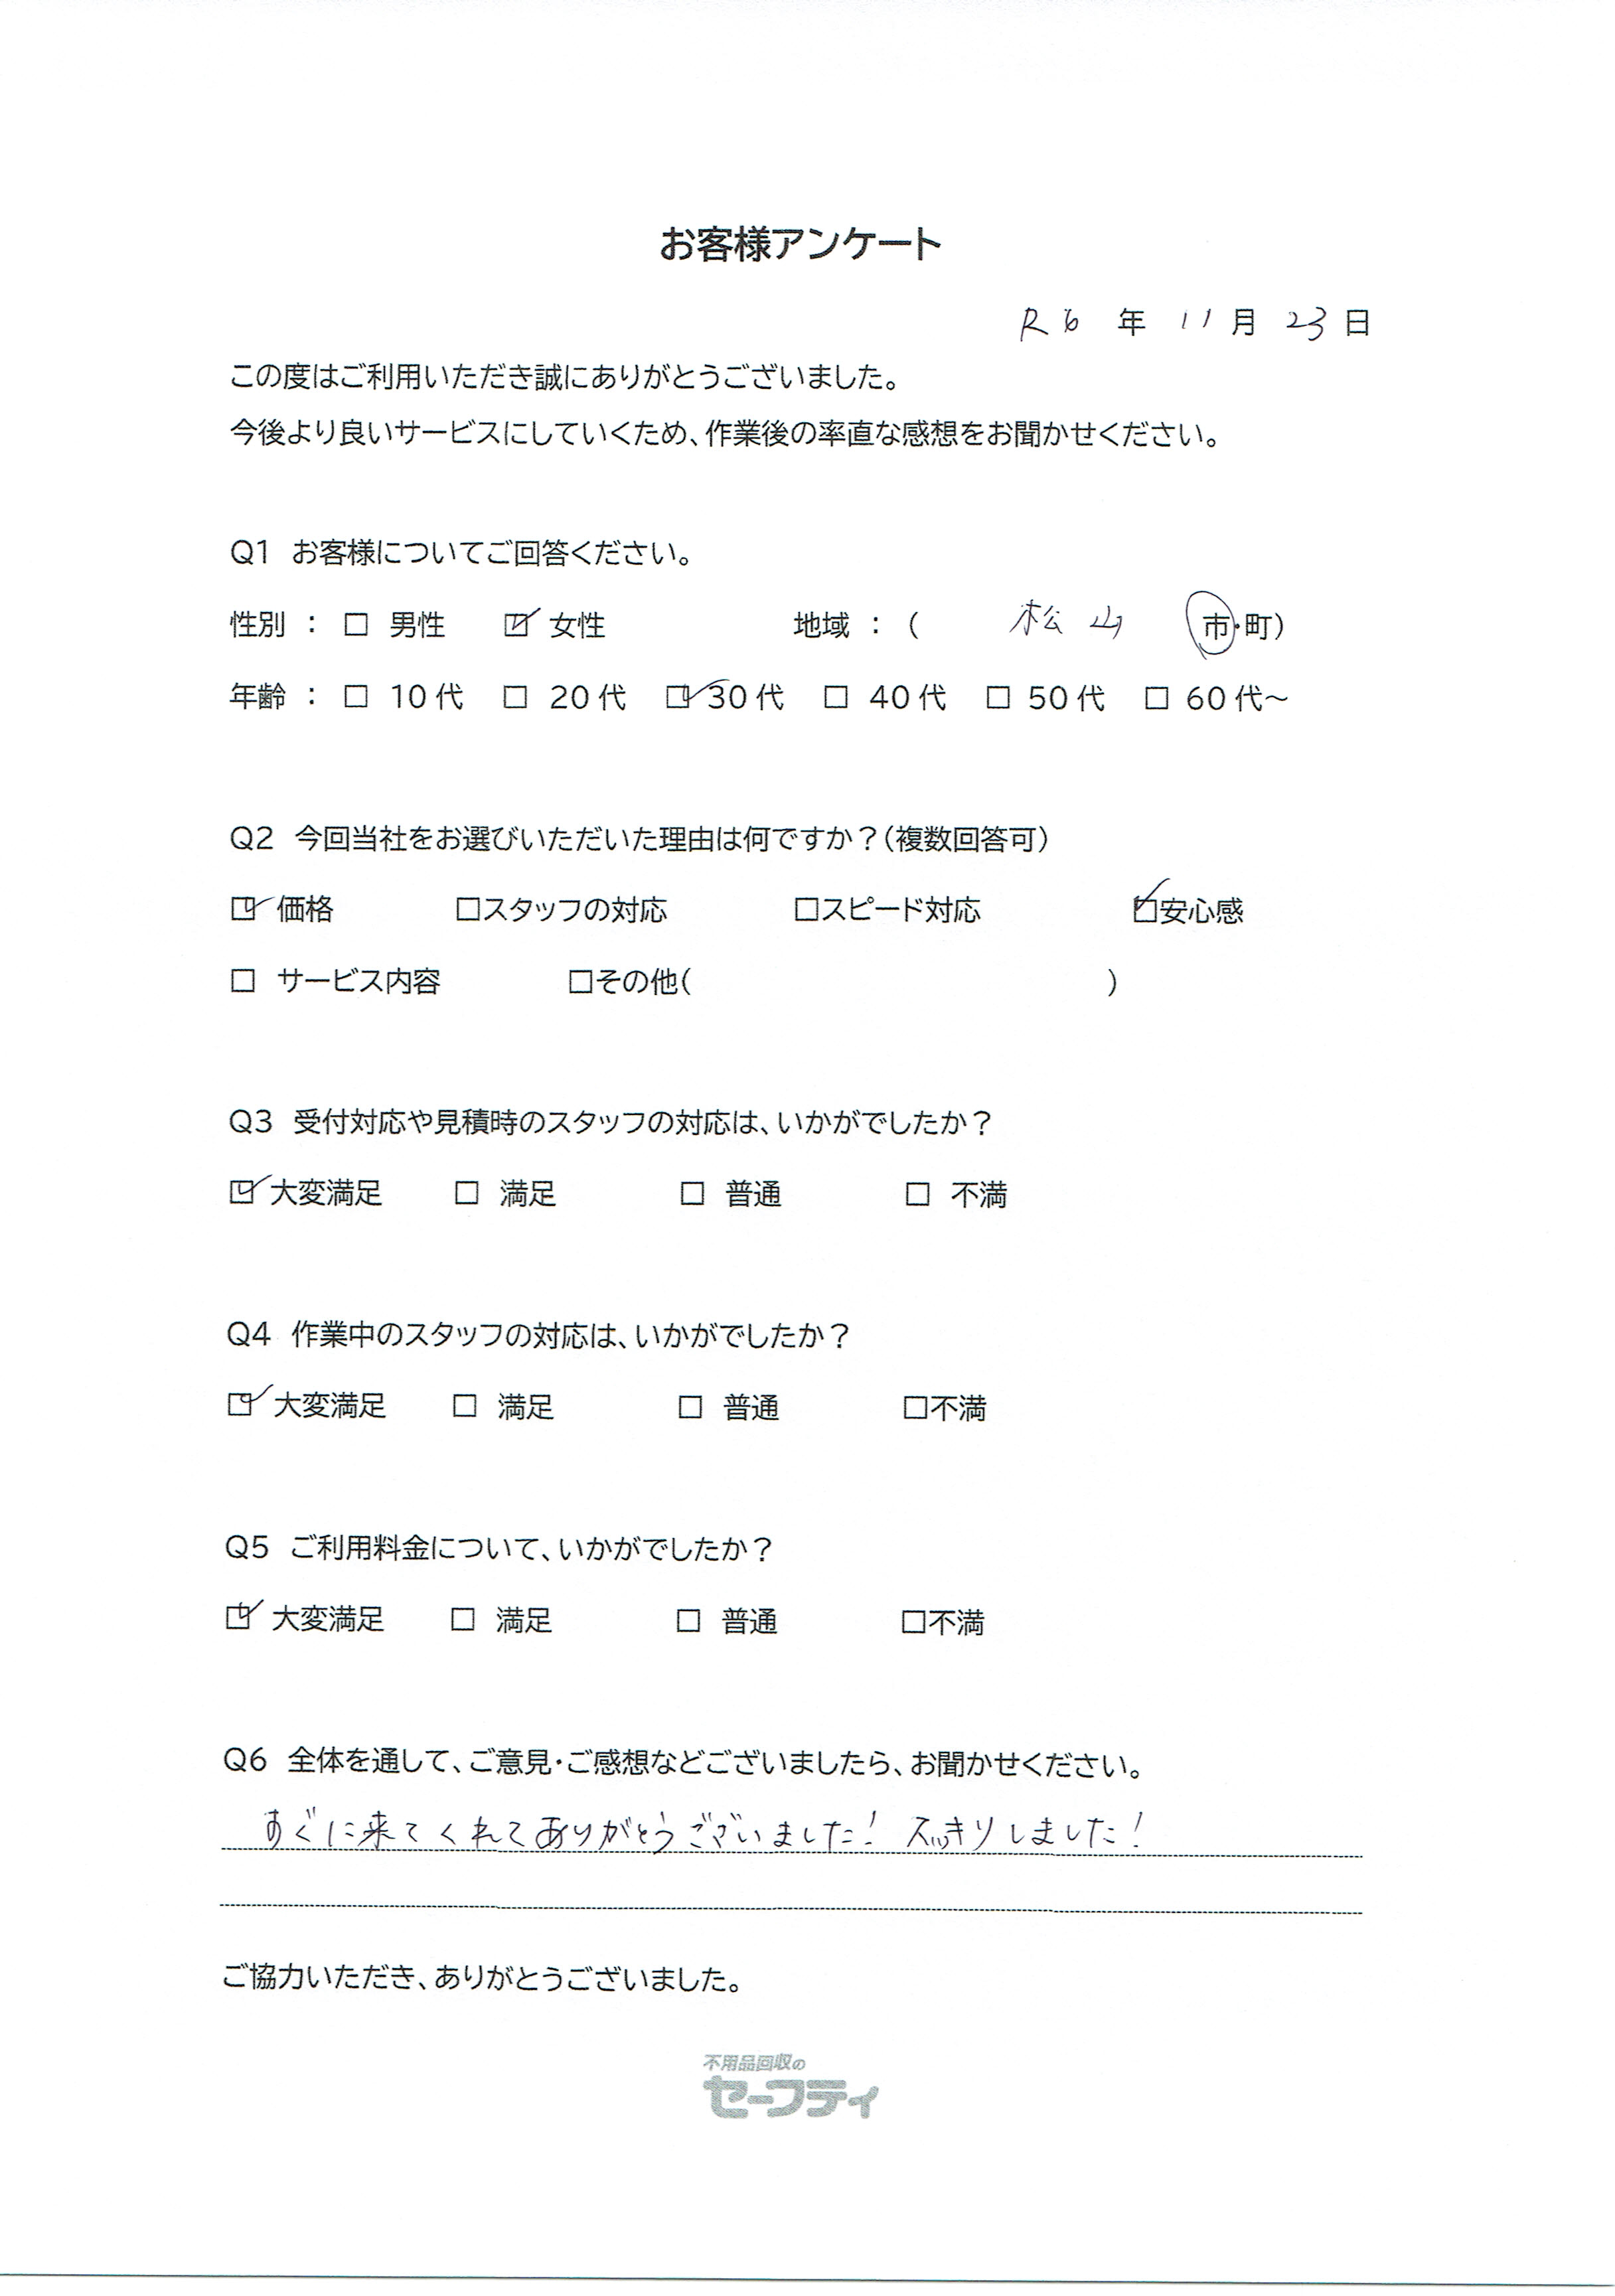 お客様アンケート
R6 年 11 月 23 日
この度はご利用いただき誠にありがとうございました。
今後より良いサービスにしていくため、作業後の率直な感想をお聞かせください。
Q1 お客様についてご回答ください。
性別 : □ 男性 ☑ 女性 地域 : ( 松山 市・町)
年齢 : □ 10代 □ 20代 ☑ 30代 □ 40代 □ 50代 □ 60代~
Q2 今回当社をお選びいただいた理由は何ですか?(複数回答可)
☑ 価格 □スタッフの対応 □スピード対応 ☑安心感
□ サービス内容 □その他( )
Q3 受付対応や見積時のスタッフの対応は、いかがでしたか?
☑ 大変満足 □ 満足 □ 普通 □ 不満
Q4 作業中のスタッフの対応は、いかがでしたか?
☑ 大変満足 □ 満足 □ 普通 □不満
Q5 ご利用料金について、いかがでしたか?
☑ 大変満足 □ 満足 □ 普通 □不満
Q6 全体を通して、ご意見・ご感想などございましたら、お聞かせください。
すぐに来てくれてありがとうございました! スッキリしました!
ご協力いただき、ありがとうございました。
不用品回収の
セーフティ